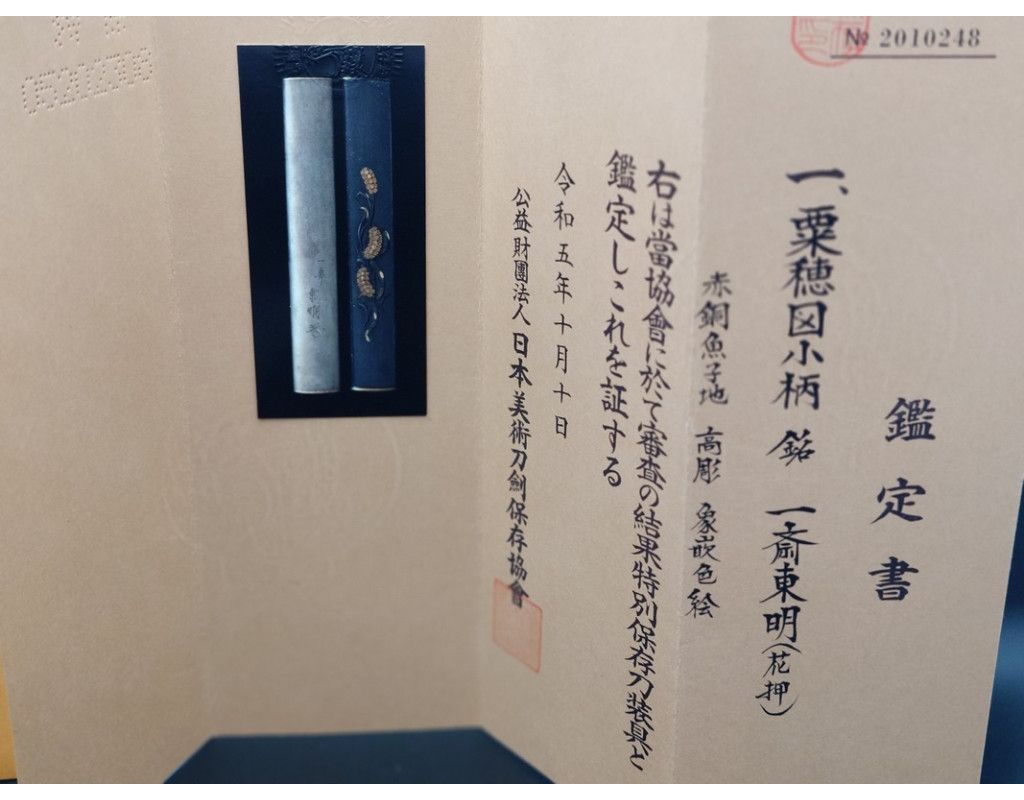 № 2010248
鑑定書
一、粟穂図小柄 銘 一斎東明(花押)
赤銅魚子地 高彫 象嵌色絵
右は當協會に於て審査の結果特別保存刀装具と
鑑定しこれを証する
令和五年十月十日
公益財團法人 日本美術刀劍保存協會